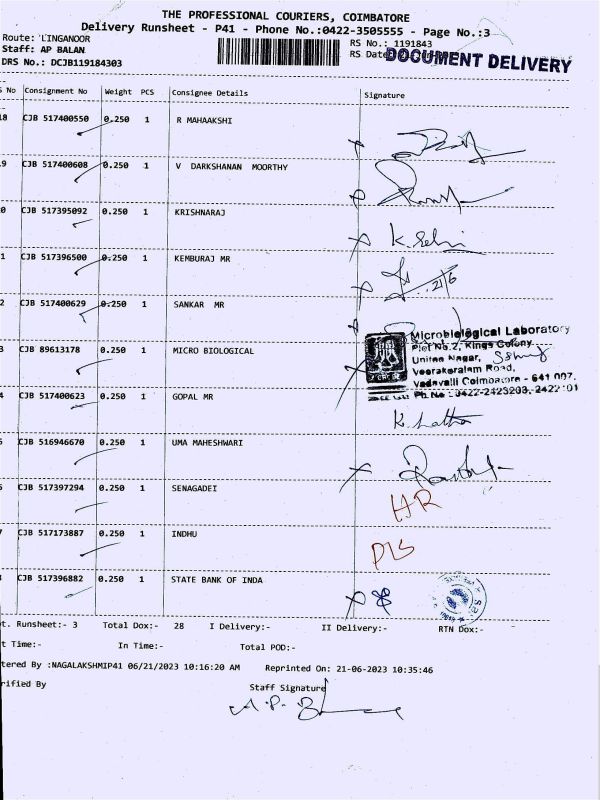 THE PROFESSIONAL COURIERS, COIMBATORE
Delivery Runsheet - P41 - Phone No.:0422-3505555 - Page No.:3
Route: LINGANOOR RS No.: 1191843
Staff: AP BALAN RS Date
DOCUMENT DELIVERY
DRS No.: DCJB119184303
No Consignment No Weight PCS Consignee Details Signature
8 CJB 517400550 0.250 1 R MAHAAKSHI
9 CJB 517400608 0.250 1 V DARKSHANAN MOORTHY
0 CJB 517395092 0.250 1 KRISHNARAJ K. Selvi
1 CJB 517396500 0.250 1 KEMBURAJ MR 21/6
2 CJB 517400629 0.250 1 SANKAR MR
3 CJB 89613178 0.250 1 MICRO BIOLOGICAL
Microbiological Laboratory
Plot No.2, Kings Colony
United Nagar,
Veerakeralam Road,
Vadavalli Coimbatore - 641 007.
Ph.No : 0422-2423203, 2422101
4 CJB 517400623 0.250 1 GOPAL MR K. Latha
5 CJB 516946670 0.250 1 UMA MAHESHWARI
6 CJB 517397294 0.250 1 SENAGADEI HR
7 CJB 517173887 0.250 1 INDHU DLS
CJB 517396882 0.250 1 STATE BANK OF INDA
t. Runsheet:- 3 Total Dox:- 28 I Delivery:- II Delivery:- RTN Dox:-
t Time:- In Time:- Total POD:-
tered By :NAGALAKSHMIP41 06/21/2023 10:16:20 AM Reprinted On: 21-06-2023 10:35:46
rified By Staff Signature
A.P. B